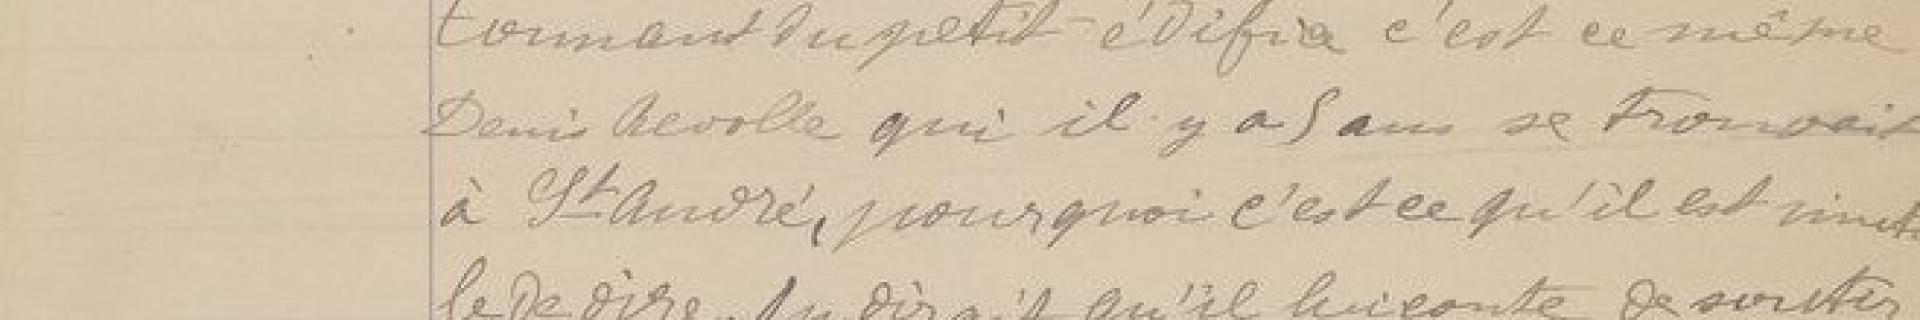 tournant du petit édifice c'est ce même
Denis qui il y a 5 ans se trouvait
à St André, pourquoi c'est ce qu'il est inut
le de dire. On dirait qu'il lui conte de sortir